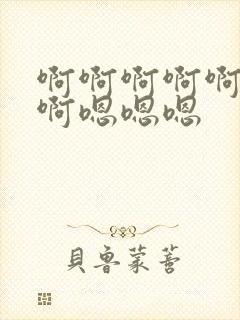 啊啊啊啊啊
啊嗯嗯嗯
貝魯蒙蒈